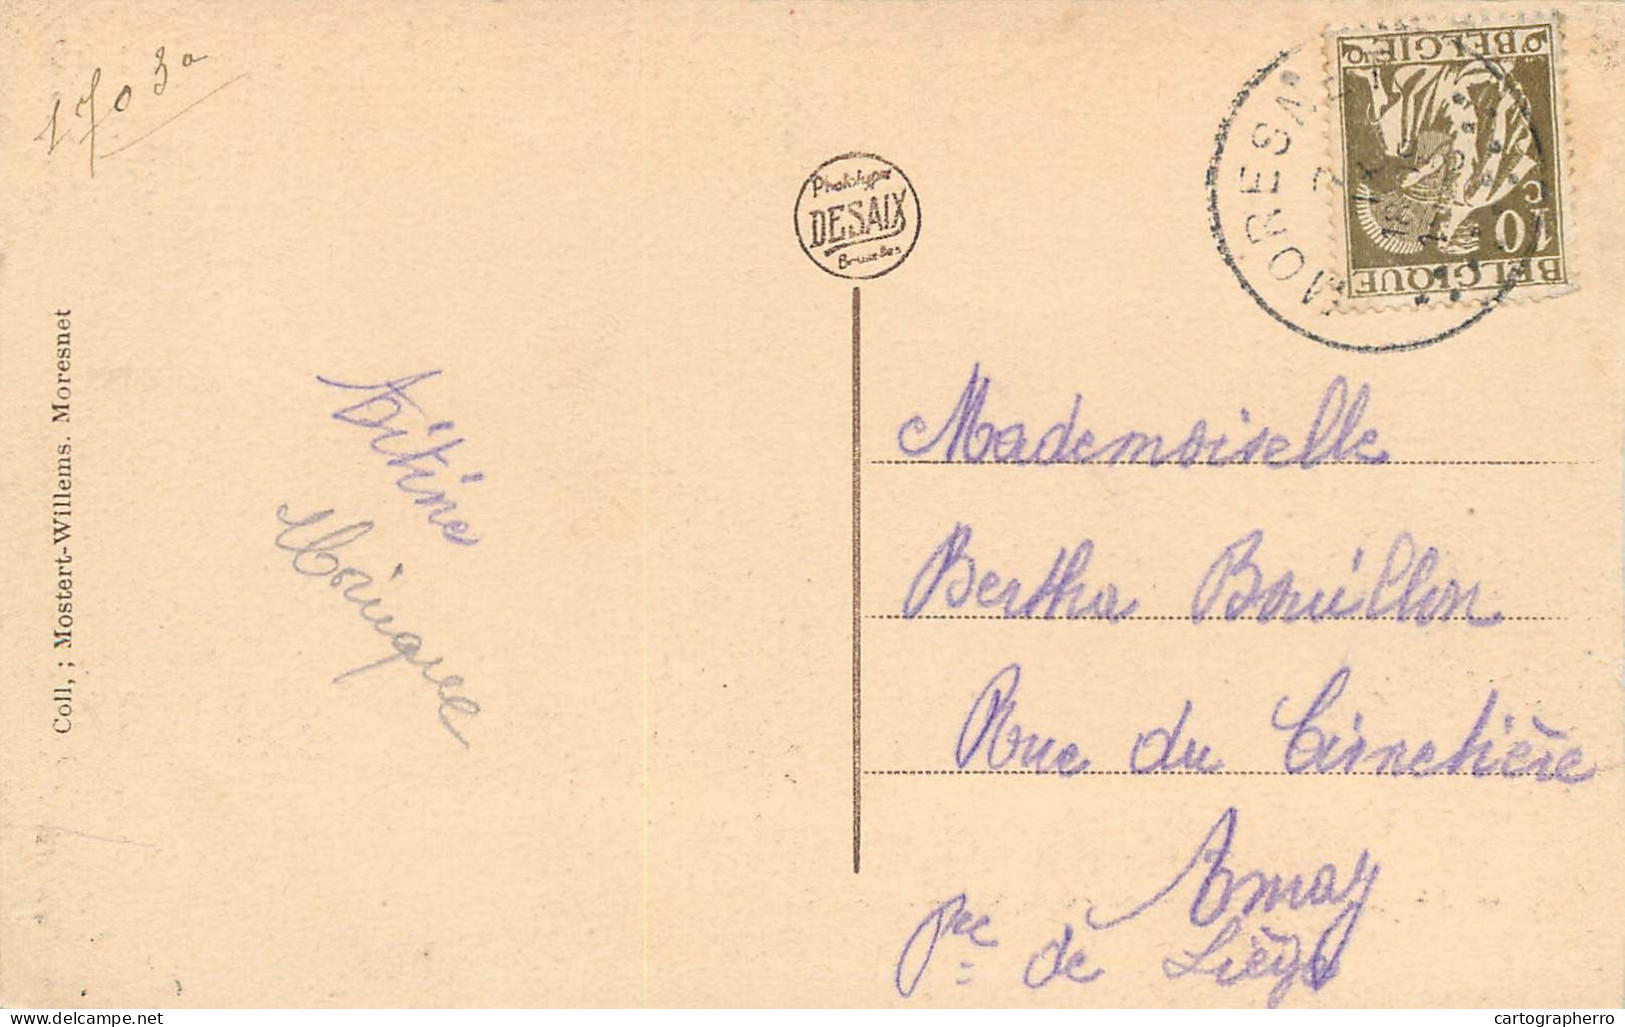 1703a
Phototypie
DESAIX
Bruxelles
MORESN
BELGIQUE
10 C
BELGIË
Coll, ; Mostert-Willems. Moresnet
Titine
Monique
Mademoiselle
Bertha Bouillon
Rue du Cimetière
Amay
Pce de Liège
www.delcampe.net
cartographerro